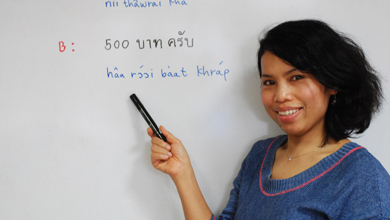 nîi thâwrai khá
B: 500 บาท ครับ
hâa rɔ́ɔi bàat khráp